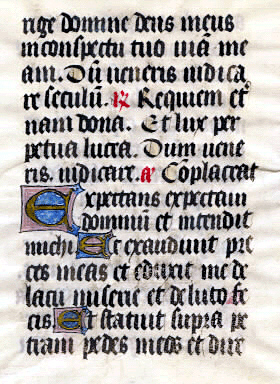 rige domine deus meus
in conspectu tuo viam me
am. Dū veneris iudica
re seculū. R Requiem eter
nam dona. Et lux per
petua lucea. Dum vene
ris. iudicare. a Cōplaceat
Expectans expectaui
dominū et intendit
michi Et exaudiuit pre
ces meas et eduxit me de
lacu miserie et de luto fe
cis. Et statuit supra pe
tram pedes meos et dire